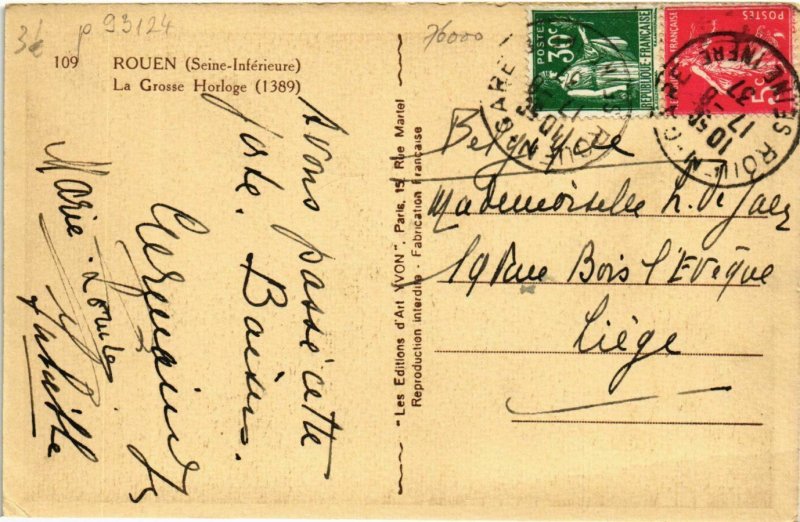 36 p 93124
70000
109 ROUEN (Seine-Inférieure)
La Grosse Horloge (1389)
Avons passé cette
porte. Baisers.
Marie-Louise
"Les Editions d'Art YVON", Paris, 15, Rue Martel
Reproduction interdite - Fabrication Française
POSTES 30c REPUBLIQUE FRANÇAISE
POSTES 5c REPUBLIQUE FRANÇAISE
ROUEN GARE
17 - 8
37
SEINE INFRE
Belgique
Mademoiselle
19 Rue Bois l'Evêque
Liège